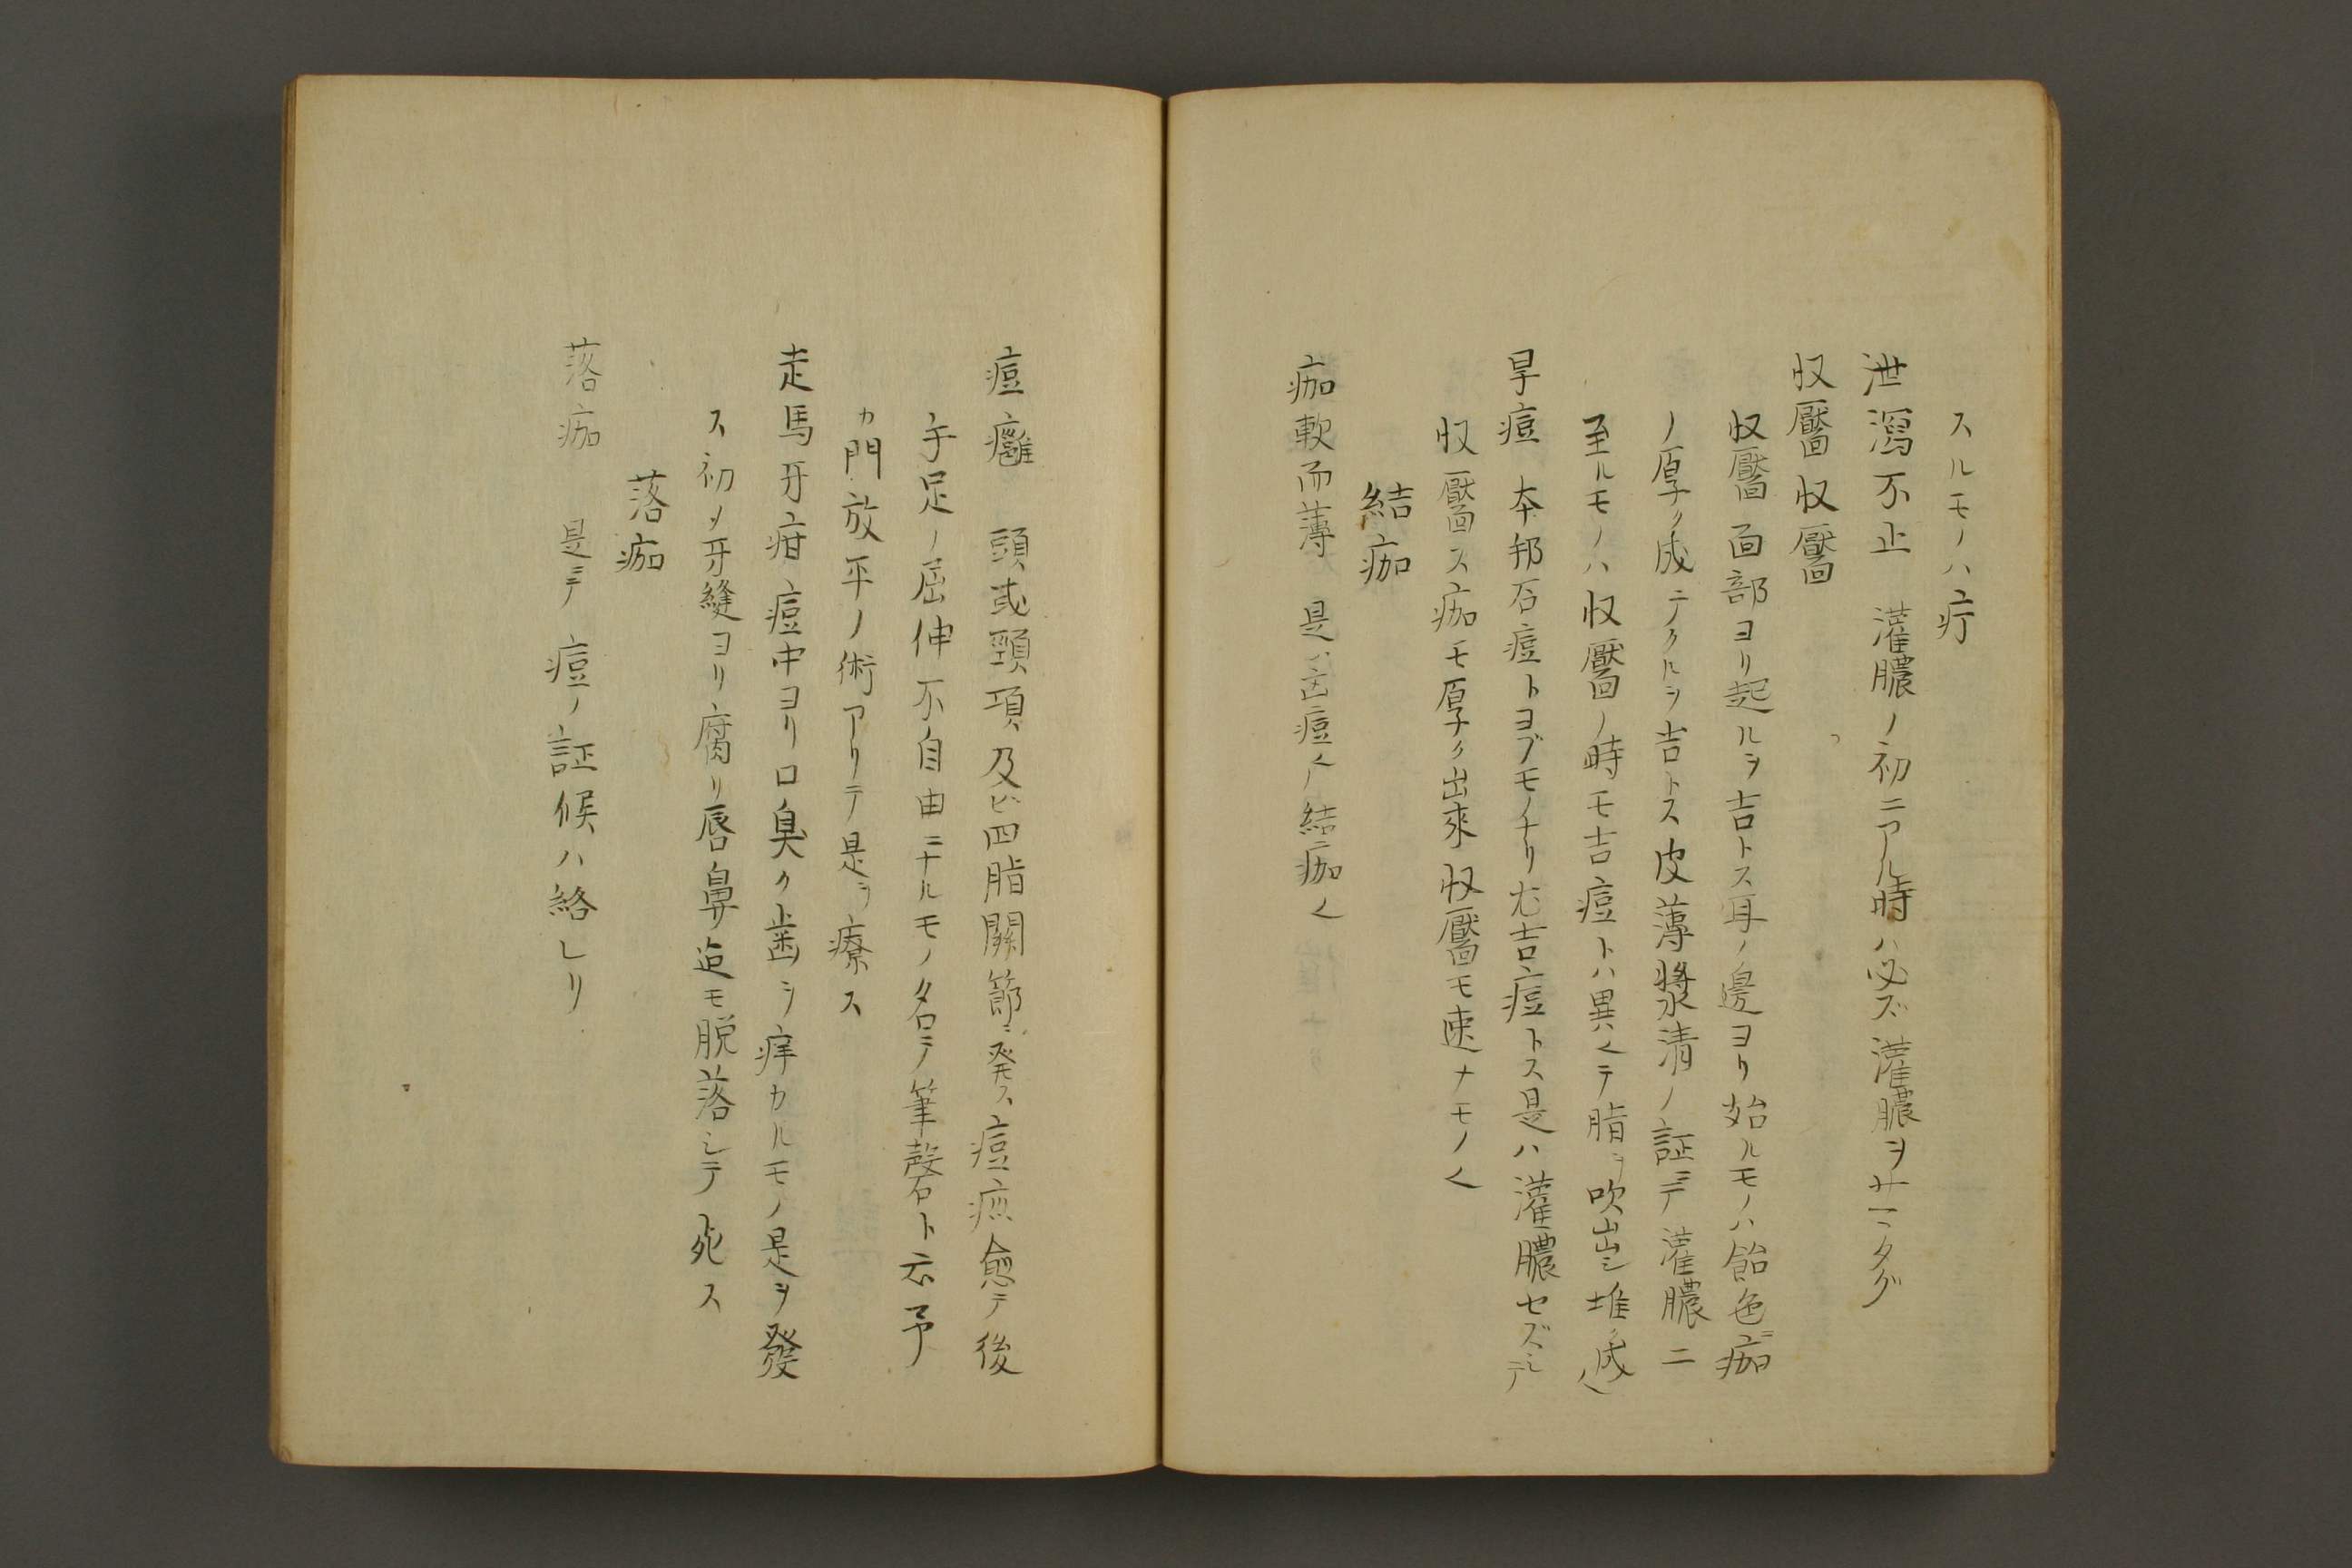 スルモノハ疔
泄瀉不止 灌膿ノ初ニアル時ハ必ズ灌膿ヲサマタグ
収靨収靨
収靨面部ヨリ起ルヲ吉トス耳ノ邊ヨリ始ルモノハ飴色ニ痂
ノ厚ク成テクルヲ吉トス皮薄漿清ノ証ニテ灌膿ニ
至ルモノハ収靨ノ時モ吉痘トハ異ㄑテ脂ヲ吹出シ堆ク成ㄑ
旱痘 本邦石痘トヨブモノナリ尤吉痘トス是ハ灌膿セズシテ
収靨ス痂モ厚ク出来収靨モ速ナモノㄑ
結痂
痂軟而薄 是ハ吉痘ㄑノ結痂ㄑ
痘癰 頭或頸項及ビ四脂關節ニ発ス痘疵愈テ後
手足ノ屈伸不自由ニナルモノ名ニテ筆磬石ト云予
カ門放平ノ術アリテ是ヲ療ス
走馬牙疳 痘中ヨリ口臭ク歯ヲ痒カルモノ是ヲ發
ス初メ牙縫ヨリ腐リ唇鼻迄モ脱落シテ死ス
落痂
落痂 是ニテ痘ノ証候ハ絡レリ